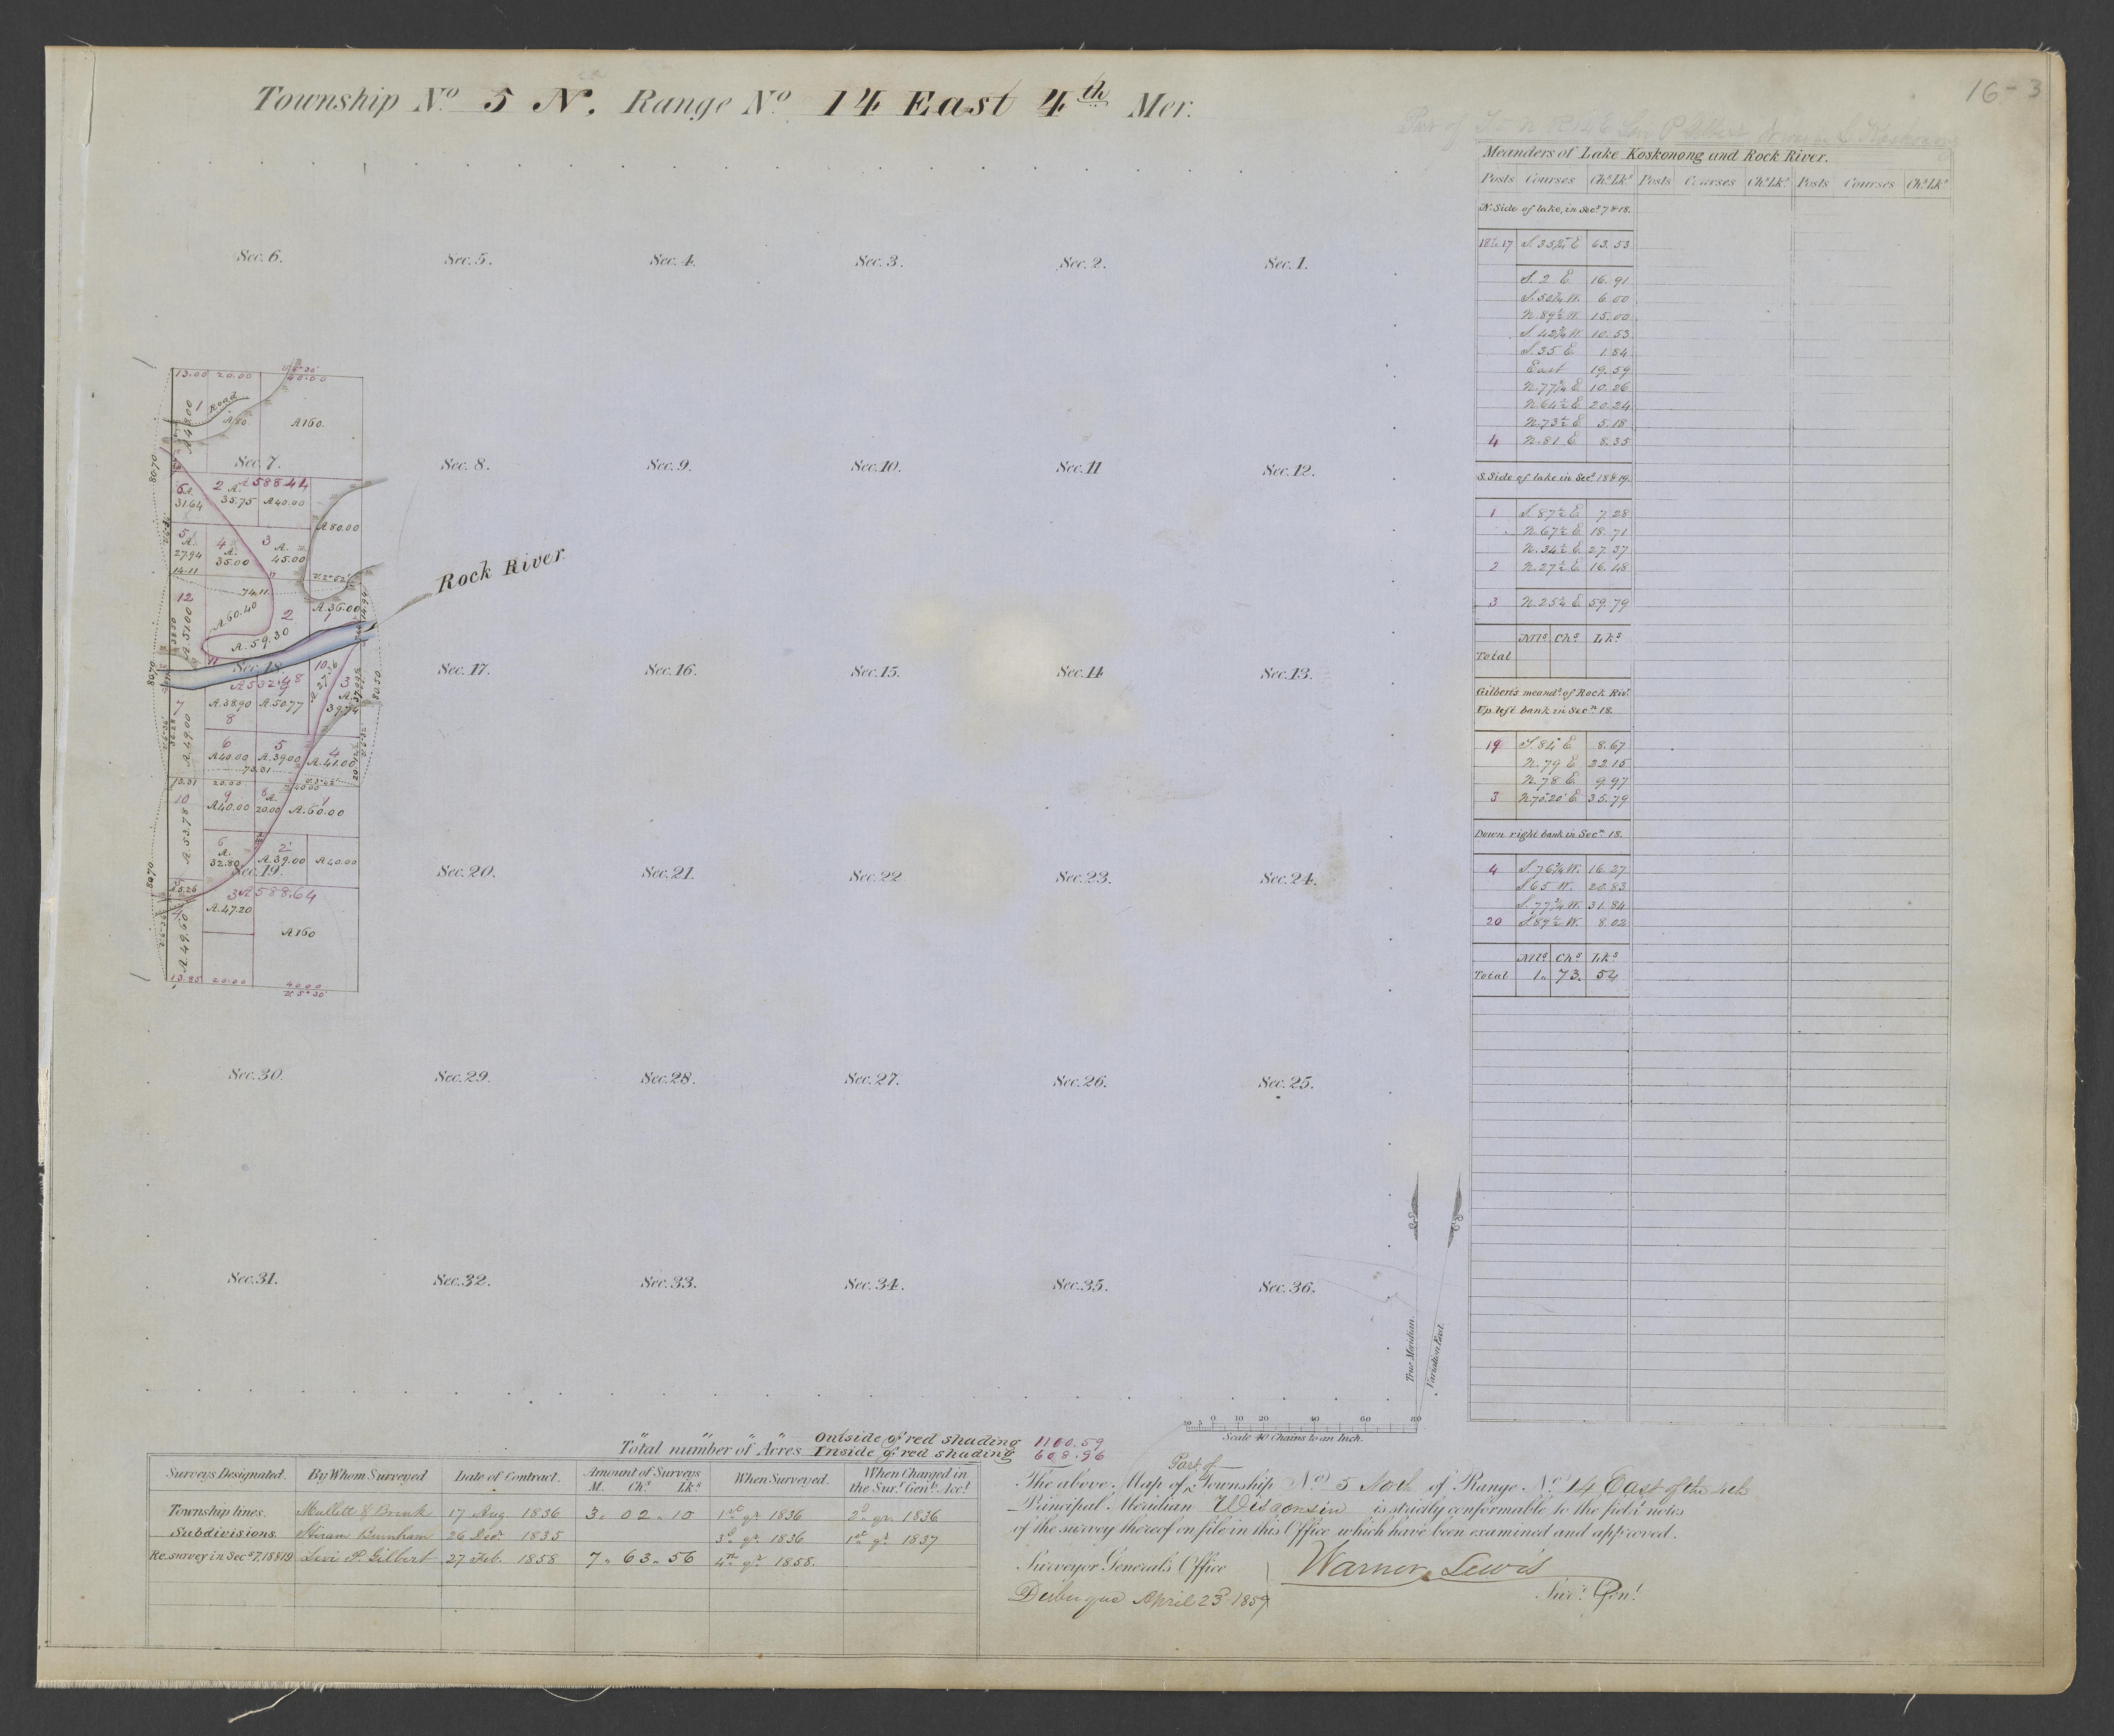 16-3
Township No. 5 N. Range No. 14 East 4th Mer.
Meanders of Lake Koskonong and Rock River.
Posts Courses Chs. Lks. Posts Courses Chs. Lks. Posts Courses Chs. Lks.
N. Side of lake, in Secs. 7 & 18.
18 to 17 S. 35¾ E 63.53
S. 2 E 16.91
S. 50¾ W. 6.00
N. 89½ W. 15.00
S. 42¾ W. 10.53
S. 35 E 1.84
East 19.59
N. 77¾ E. 10.26
N. 64½ E. 20.24
N. 73½ E 5.18
4 N. 81 E 8.35
S. Side of lake in Secs. 18 & 19.
1 S. 87½ E 7.28
N. 67½ E 18.71
N. 34½ E 27.37
2 N. 27½ E. 16.48
3 N. 25¼ E 59.79
Mls Chs Lks
Total
Gilbert's meands. of Rock Rivr.
Up left bank in Secn. 18.
19 S. 84 E 8.67
N. 79 E 22.15
N. 78 E 9.97
3 N. 70°20' E 35.79
Down right bank in Secn. 18.
4 S. 76¾ W. 16.27
S 65 W. 20.83
S. 77¾ W. 31.84
20 S. 89½ W. 8.02
Mls Chs Lks
Total 1. 73. 54
Sec. 6. Sec. 5. Sec. 4. Sec. 3. Sec. 2. Sec. 1.
13.00 20.00 40.00
1 Road
A 80. A 160.
A 48.00
8070
Sec. 7. Sec. 8. Sec. 9. Sec. 10. Sec. 11 Sec. 12.
A 588.44
6 A. 31.64 2 A. 35.75 A 40.00
A 80.00
5 A. 27.94 4 A. 35.00 3 A. 45.00
14.11
74.11
12 A. 51.00
A 60.40 2 A. 36.00 1
A. 59.30
11
Rock River
8070
80.50
Sec. 18. Sec. 17. Sec. 16. Sec. 15. Sec. 14 Sec. 13.
A 532.48
10 3 A. 39.74
7 A. 49.00
A. 38.90 8 9 A. 50.77
6 A 40.00 5 A. 39.00 4 A. 41.00
73.31
13.31 20.00 40.00
10 A. 53.78
9 A 40.00 8 A. 20.00 A. 60.00
6 A. 32.80 2 A. 39.00 A 40.00
8070
Sec. 19. Sec. 20. Sec. 21. Sec. 22 Sec. 23. Sec. 24.
A 588.64
A 5.26
3 A. 47.20
4 A 49.60
A 160
13.85 20.00 40.00
Sec. 30. Sec. 29. Sec. 28. Sec. 27. Sec. 26. Sec. 25.
Sec. 31. Sec. 32. Sec. 33. Sec. 34. Sec. 35. Sec. 36.
True Meridian.
Variation East.
10 5 0 10 20 40 60 80
Scale 40 Chains to an Inch.
" " " Outside of red shading 1100.59
Total number of Acres Inside of red shading 608.96
Surveys Designated. By Whom Surveyed Date of Contract. Amount of Surveys M. Chs. Lks When Surveyed. When Charged in the Sur. Genl. Acct.
Township lines. Mullett & Brink 17 Aug 1836 3. 02. 10 1st qr. 1836 2d qr. 1836
Subdivisions. Hiram Burnham 26 Decr 1835 3d qr. 1836 1st qr. 1837
Re.survey in Secs 7, 18 & 19 Levi P. Gilbert 27 Feb. 1858 7. 63. 56 4th qr 1858.
Part of
The above Map of Township No. 5 North of Range No. 14 East of the 4th
Principal Meridian Wisconsin is strictly conformable to the field notes
of the survey thereof on file in this Office which have been examined and approved.
Surveyor General's Office
Dubuque April 23d 1859
Warner Lewis
Survr. Genl.